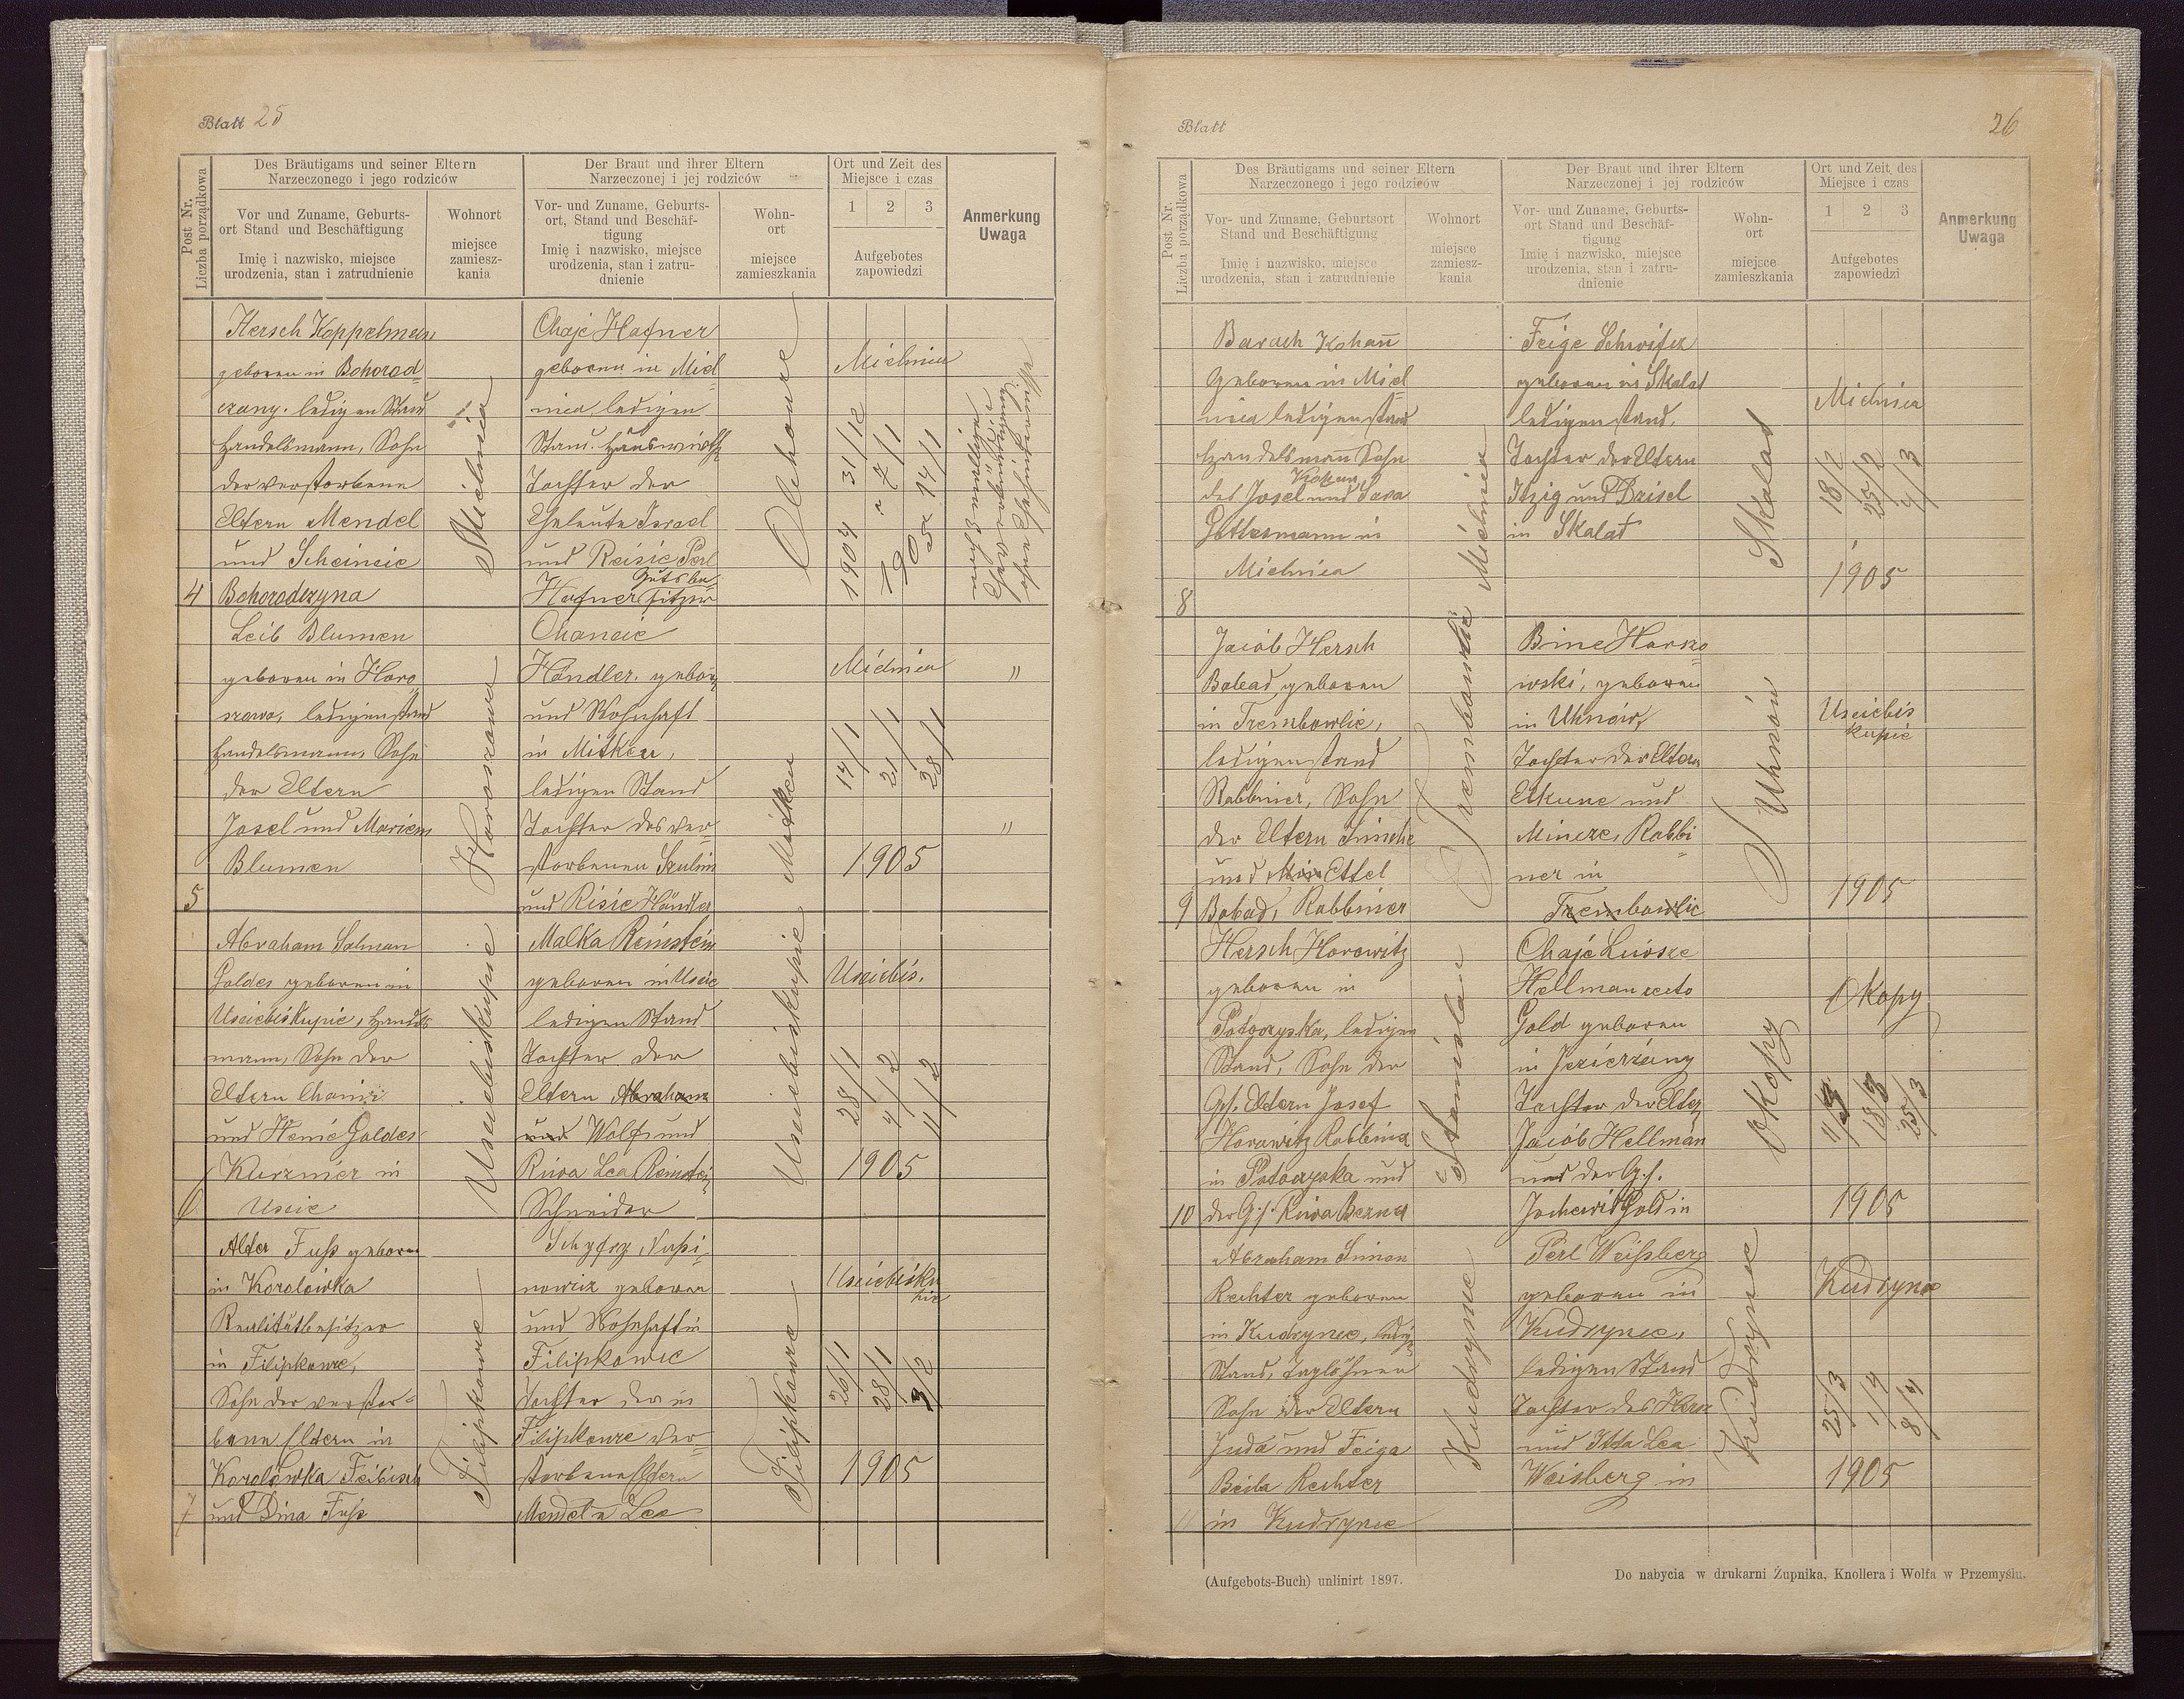 Blatt 25
Post Nr.
Liczba porządkowa
Des Bräutigams und seiner Eltern
Narzeczonego i jego rodziców
Der Braut und ihrer Eltern
Narzeczonej i jej rodziców
Ort und Zeit des
Miejsce i czas
Vor und Zuname, Geburts-
ort Stand und Beschäftigung
Imię i nazwisko, miejsce
urodzenia, stan i zatrudnienie
Wohnort
miejsce
zamiesz-
kania
Vor- und Zuname, Geburts-
ort, Stand und Beschäf-
tigung
Imię i nazwisko, miejsce
urodzenia, stan i zatru-
dnienie
Wohn-
ort
miejsce
zamieszkania
1 2 3
Aufgebotes
zapowiedzi
Anmerkung
Uwaga
4
Hersch Koppelman
geboren in Bohorod
czany. ledigen Stand
Handelsmann, Sohn
der verstorbene
Eltern Mendel
und Scheincie
Bohorodczyna
Mielnica
Chaje Hafner
geboren in Miel
nica, ledigen
Stand. Hauswirth
Tochter der
Eheleute Israel
und Reisie Perl
Hafner Gutsbe
sitzer
Olchowce
Mielnica
1904 31/12
7/1
14/1
1905
5
Leib Blumen
geboren in Horo
szowa, ledigen Stand
Handelsmann, Sohn
der Eltern
Josel und Mariem
Blumen
Horoszowa
Chancie
Händler. gebor
und Wohnhaft
in Mitkeu,
ledigen Stand
Tochter des ver-
storbenen Szulim
und Risie Händler
Mitkeu
Mielnica
14/1 21/1 28/1
1905
"
"
6
Abraham Salman
Goldes geboren in
Usciebiskupie, Handels
mann, Sohn der
Eltern
und Henie Goldes
Kurzmer in
Uscie
Usciebiskupie
Malka Reinstein
geboren in Uscie
ledigen Stand
Tochter der
Eltern Abraham
und Wolf und
Riwa Lea Reinstein
Schneider
Usciebiskupie
Usciebis.
28/1 4/2 11/2
1905
7
Alter Fuß geboren
in Korolówka
Realitätbesitzer
in Filipkowce,
Sohn der verstor-
bene Eltern in
Korolówka Feibisch
und Dina Fuß
Filipkowce
nowicz geboren
und Wohnhaft in
Filipkowce
Tochter der in
Filipkowce ver-
storbene Eltern
Mendel u Lea
Filipkowce
Usciebisku
pie
26/1 28/1 3/2
1905
Blatt
26
Post Nr.
Liczba porządkowa
Des Bräutigams und seiner Eltern
Narzeczonego i jego rodziców
Der Braut und ihrer Eltern
Narzeczonej i jej rodziców
Ort und Zeit des
Miejsce i czas
Vor- und Zuname, Geburtsort
Stand und Beschäftigung
Imię i nazwisko, miejsce
urodzenia, stan i zatrudnienie
Wohnort
miejsce
zamiesz-
kania
Vor- und Zuname, Geburts-
ort Stand und Beschäf-
tigung
Imię i nazwisko, miejsce
urodzenia, stan i zatru-
dnienie
Wohn-
ort
miejsce
zamieszkania
1 2 3
Aufgebotes
zapowiedzi
Anmerkung
Uwaga
8
Barach Kohan̄
Geboren in Miel
nica ledigen Stand
Handelsman̄ Sohn
des Josel Kohan und Sara
Gottesmann in
Mielnica
Mielnica
Feige Schwifer
geboren in Skalat
ledigen Stand.
Tochter der Eltern
Itzig und Dzisel
in Skalat
Skalad
Mielnica
18/2 25/2 4/3
1905
9
Jacób Hersch
Babad, geboren
in Trembowlie,
ledigen Stand
Rabbiner, Sohn
der Eltern Simche
und Ettel
Babad, Rabbiner
Trembowlie
Bine Horszo
wski, geboren
in Uhnów,
Tochter der Eltern
Elkune und
Mincze, Rabbi
ner in
Trembowlie
Uhnów
Usciebis
kupie
1905
10
Hersch Horowitz
geboren in
Potoczyska, ledigen
Stand, Sohn der
Gf. Eltern Josef
Horowitz Rabbiner
in Potoczyska und
der G.f. Riwa Bezner
Stanislau
Chaje Luisze
Hellman recte
Gold geboren
in Jezierzany
Tochter der Elter
Jacób Hellman
und der G.f.
Jochewit Gold in
Okopy
Okopy
11/3 18/3 25/3
1905
11
Abraham Simon
Rechter geboren
in Kudrynce, ledig
Stand, Taglöhner
Sohn der Eltern
Juda und Feiga
Beila Rechter
in Kudrynce
Kudrynce
Perl Weißberg
geboren in
Kudrynce,
ledigen Stand
Tochter des Hersz
und Itta Lea
Weisberg in
Kudrynce
Kudrynce
25/3 1/4 8/4
1905
(Aufgebots-Buch) unlinirt 1897.
Do nabycia w drukarni Żupnika, Knollera i Wolfa w Przemyślu.